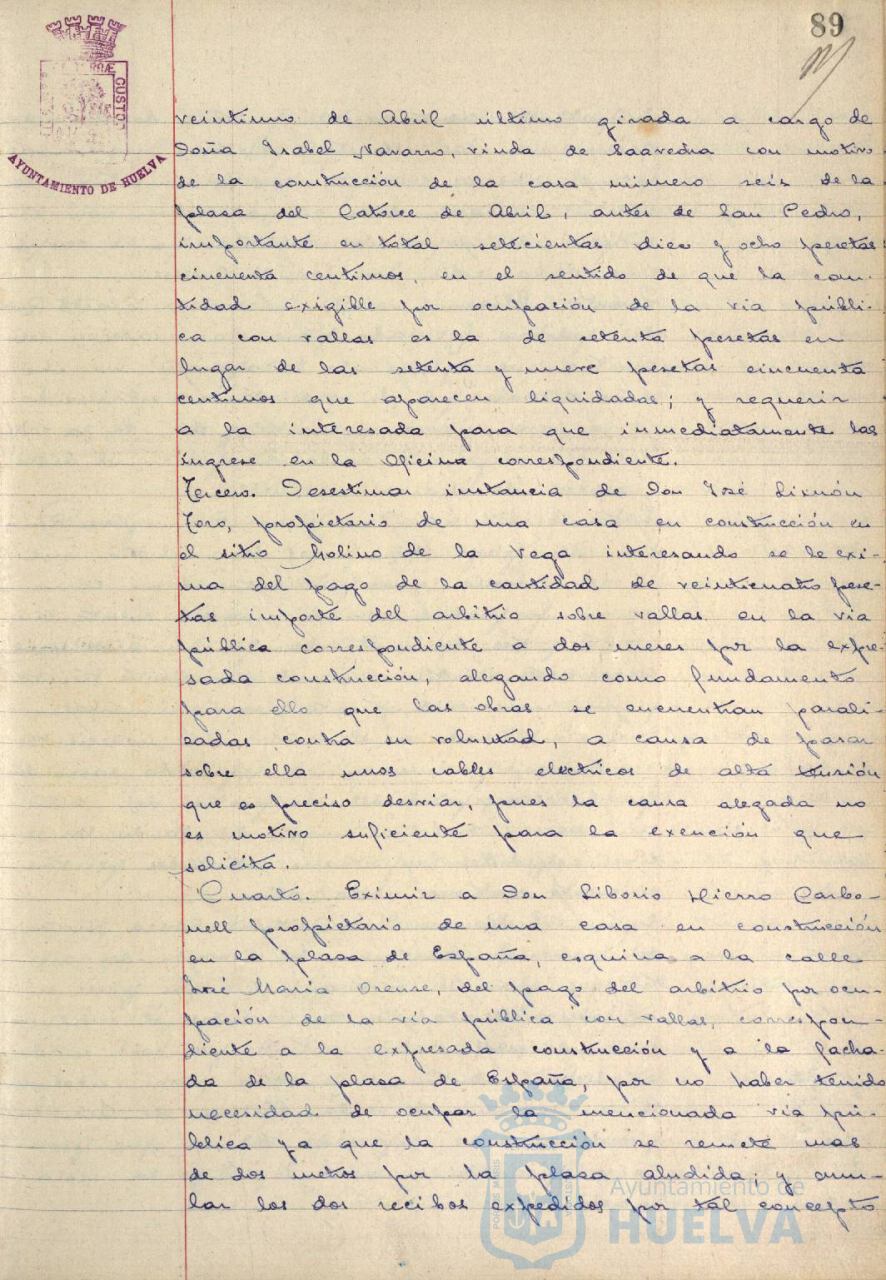 89
AYUNTAMIENTO DE HUELVA
veintiuno de Abril último girada a cargo de
Doña Isabel Navarro, viuda de Saavedra con motivo
de la construcción de la casa número seis de la
plaza del Catorce de Abril, antes de San Pedro,
importante en total setecientas diez y ocho pesetas
cincuenta centimos, en el sentido de que la can-
tidad exigible por ocupación de la via públi-
ca con vallas es la de setenta pesetas en
lugar de las setenta y nueve pesetas cincuenta
centimos que aparecen liquidadas; y requerir
a la interesada para que inmediatamente las
ingrese en la Oficina correspondiente.
Tercero. Desestimar instancia de Don José
Toro, propietario de una casa en construcción en
el sitio Molino de la Vega interesando se le exi-
ma del pago de la cantidad de veinticuatro pese-
tas importe del arbitrio sobre vallas en la via
pública correspondiente a dos meses por la expre-
sada construcción, alegando como fundamento
para ello que las obras se encuentran parali-
zadas contra su voluntad, a causa de pasar
sobre ella unos cables electricos de alta tensión
que es preciso desviar, pues la causa alegada no
es motivo suficiente para la exención que
solicita.
Cuarto. Eximir a Don Liborio Hierro Carbo-
nell propietario de una casa en construcción
en la plaza de España, esquina a la calle
José Maria Orense, del pago del arbitrio por ocu-
pación de la via pública con vallas, correspon-
diente a la expresada construcción y a la facha-
da de la plaza de España, por no haber tenido
necesidad de ocupar la mencionada via pú-
blica ya que la construcción se remete mas
de dos metros por la plaza aludida; y anu-
lar los dos recibos expedidos por tal concepto
Ayuntamiento de
HUELVA